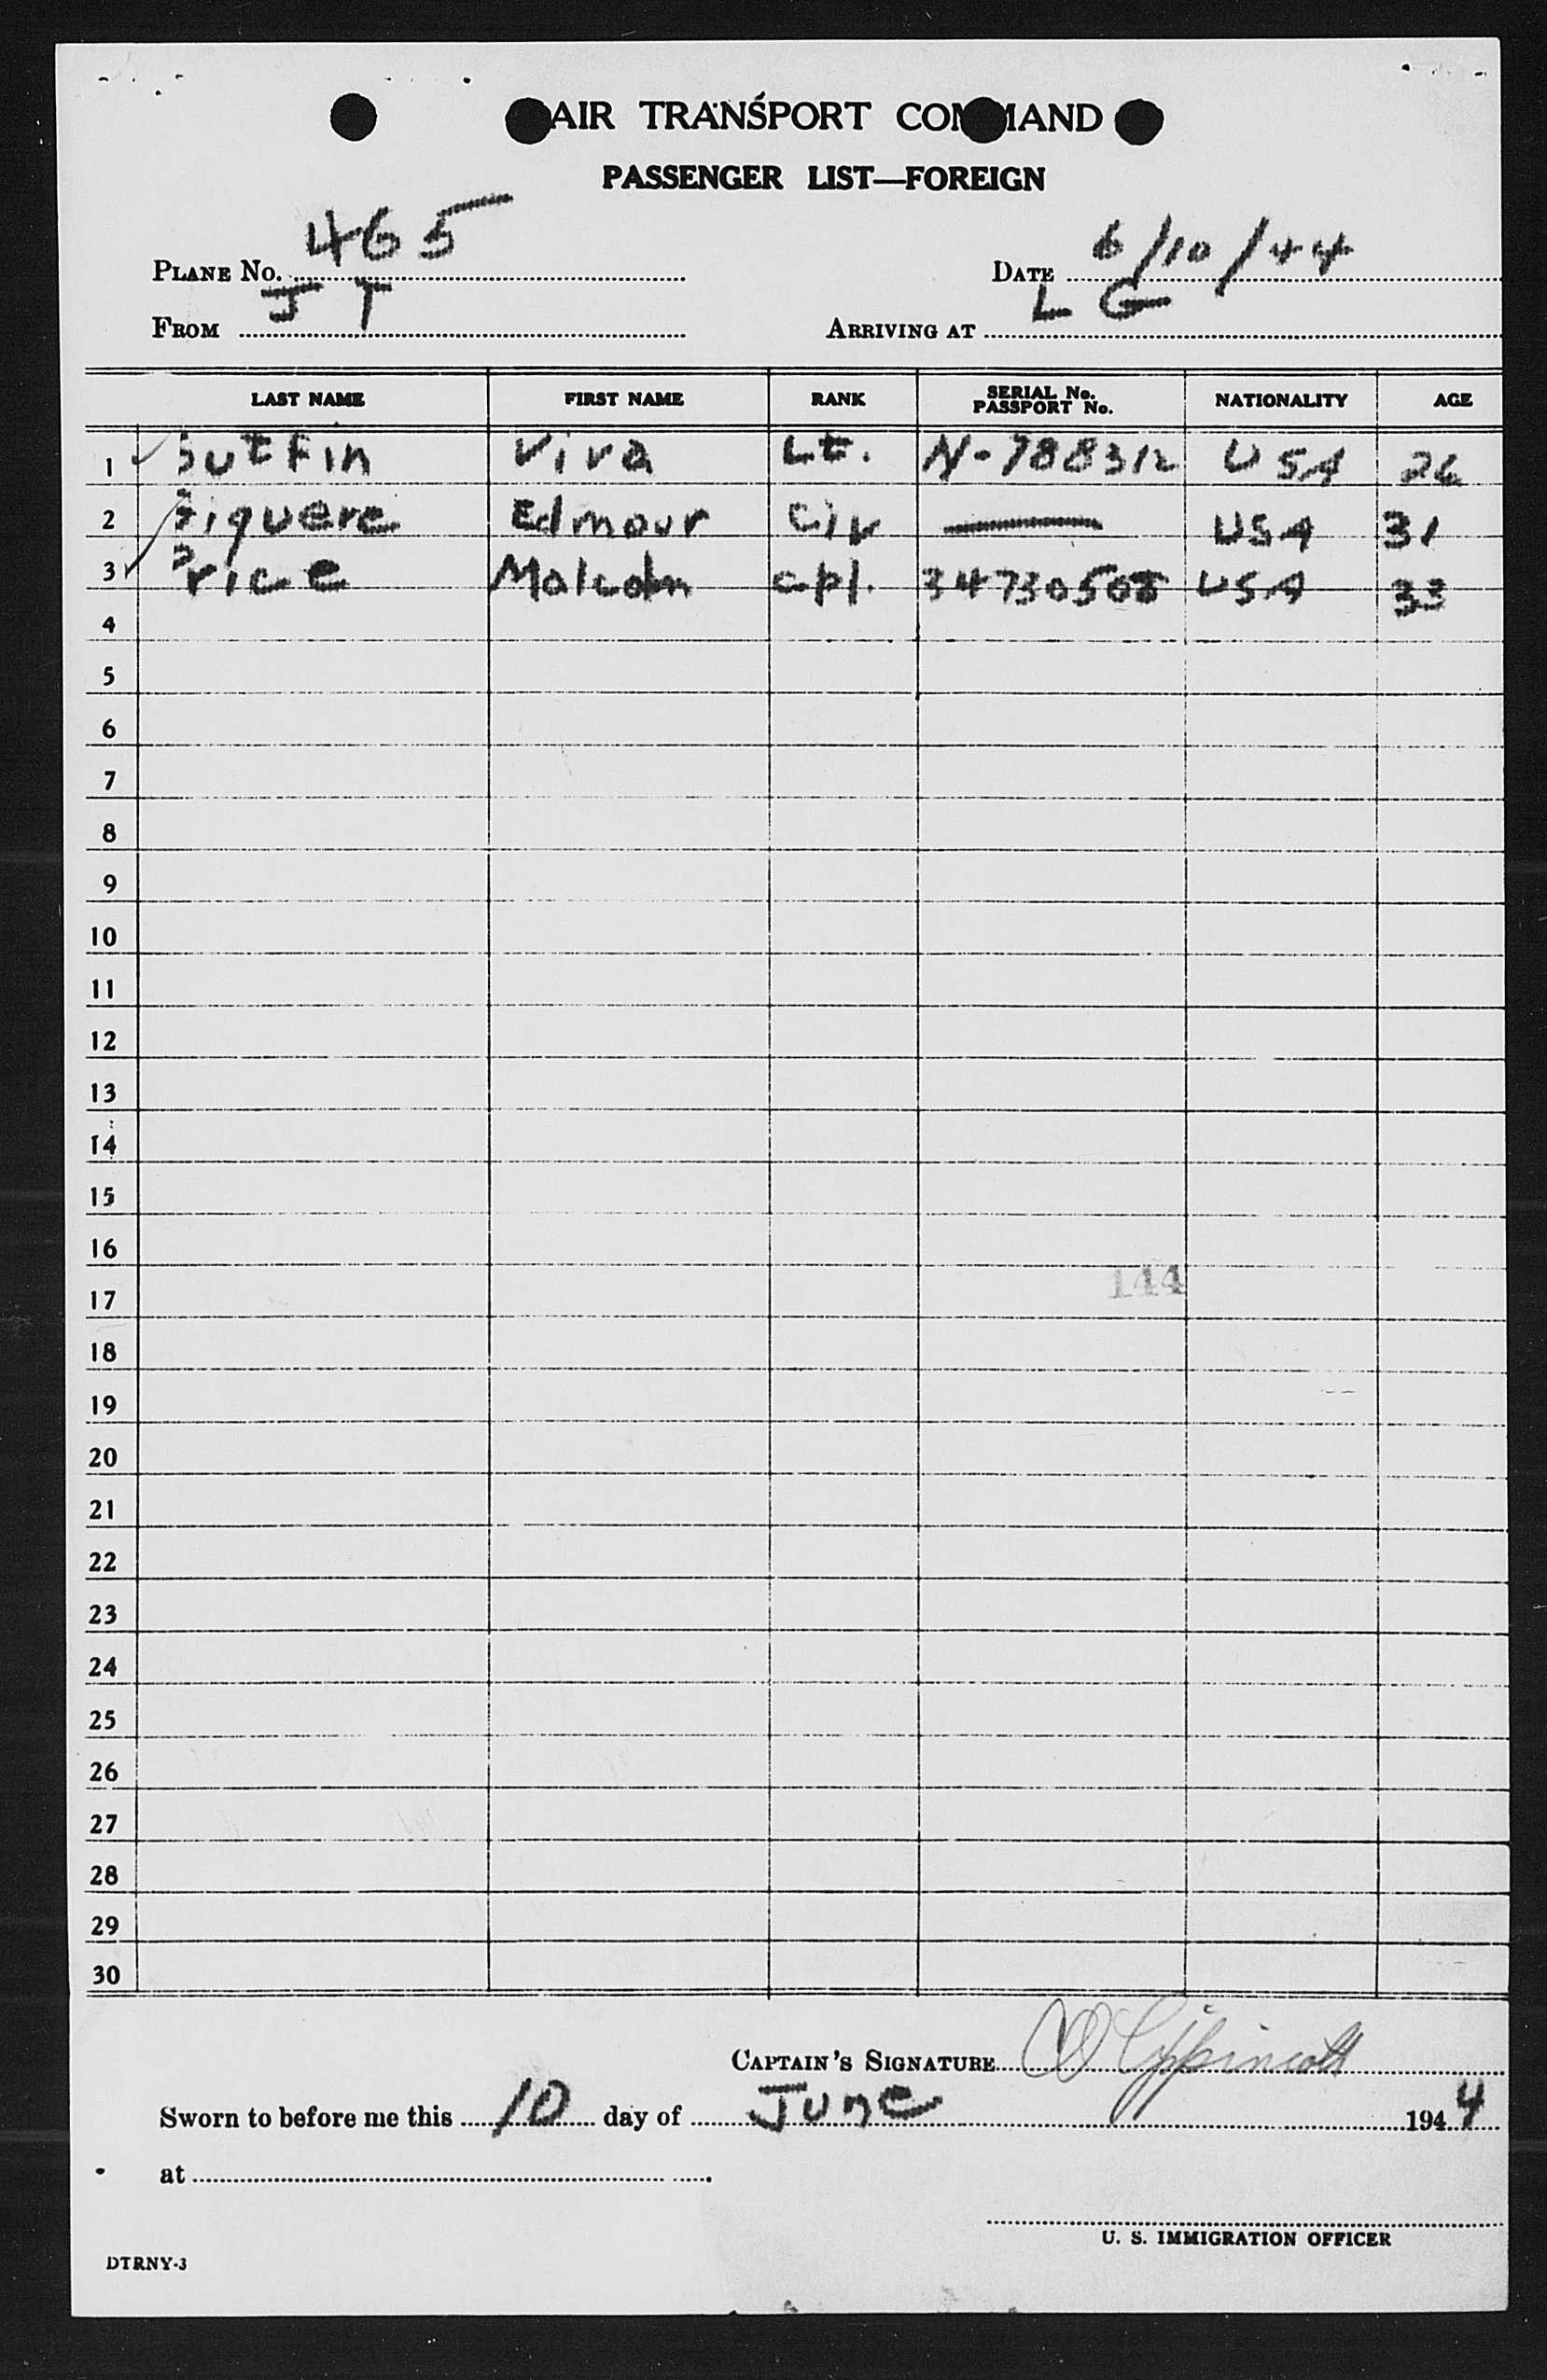 AIR TRANSPORT COMMAND
PASSENGER LIST—FOREIGN
PLANE No. 465 DATE 6/10/44
FROM J T ARRIVING AT L G
LAST NAME FIRST NAME RANK SERIAL No. PASSPORT No. NATIONALITY AGE
1 Sutfin Viva Lt. N-788312 USA 26
2 Edmour Civ — USA 31
3 Price Malcolm cpl. USA 33
4
5
6
7
8
9
10
11
12
13
14
15
16
144
17
18
19
20
21
22
23
24
25
26
27
28
29
30
CAPTAIN'S SIGNATURE Lippincott
Sworn to before me this 10 day of June 1944
at
U. S. IMMIGRATION OFFICER
DTRNY-3